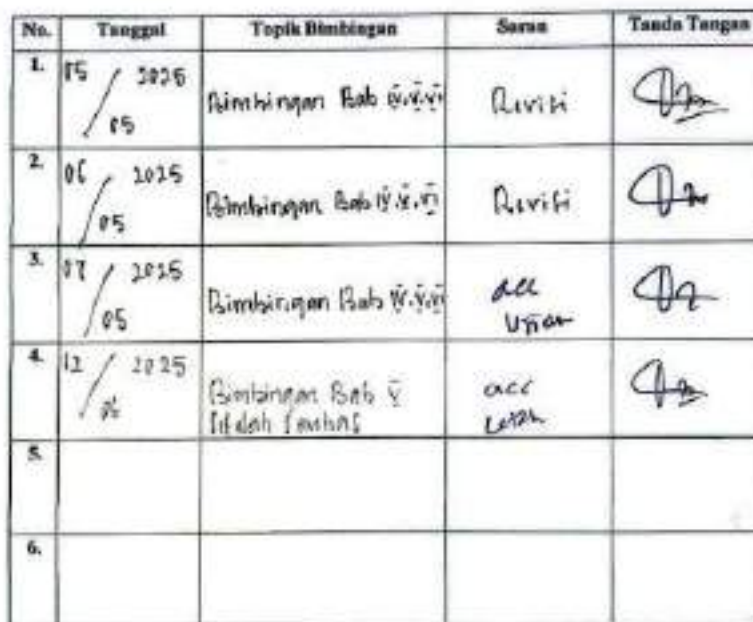 No. Tanggal Topik Bimbingan Saran Tanda Tangan
1. 05/05 2025 Bimbingan Bab IV, V, VI Revisi
2. 06/05 2025 Bimbingan Bab IV, V, VI Revisi
3. 07/05 2025 Bimbingan Bab IV, V, VI acc
Ujian
4. 12/ 2025 Bimbingan Bab V acc
Setelah
5.
6.